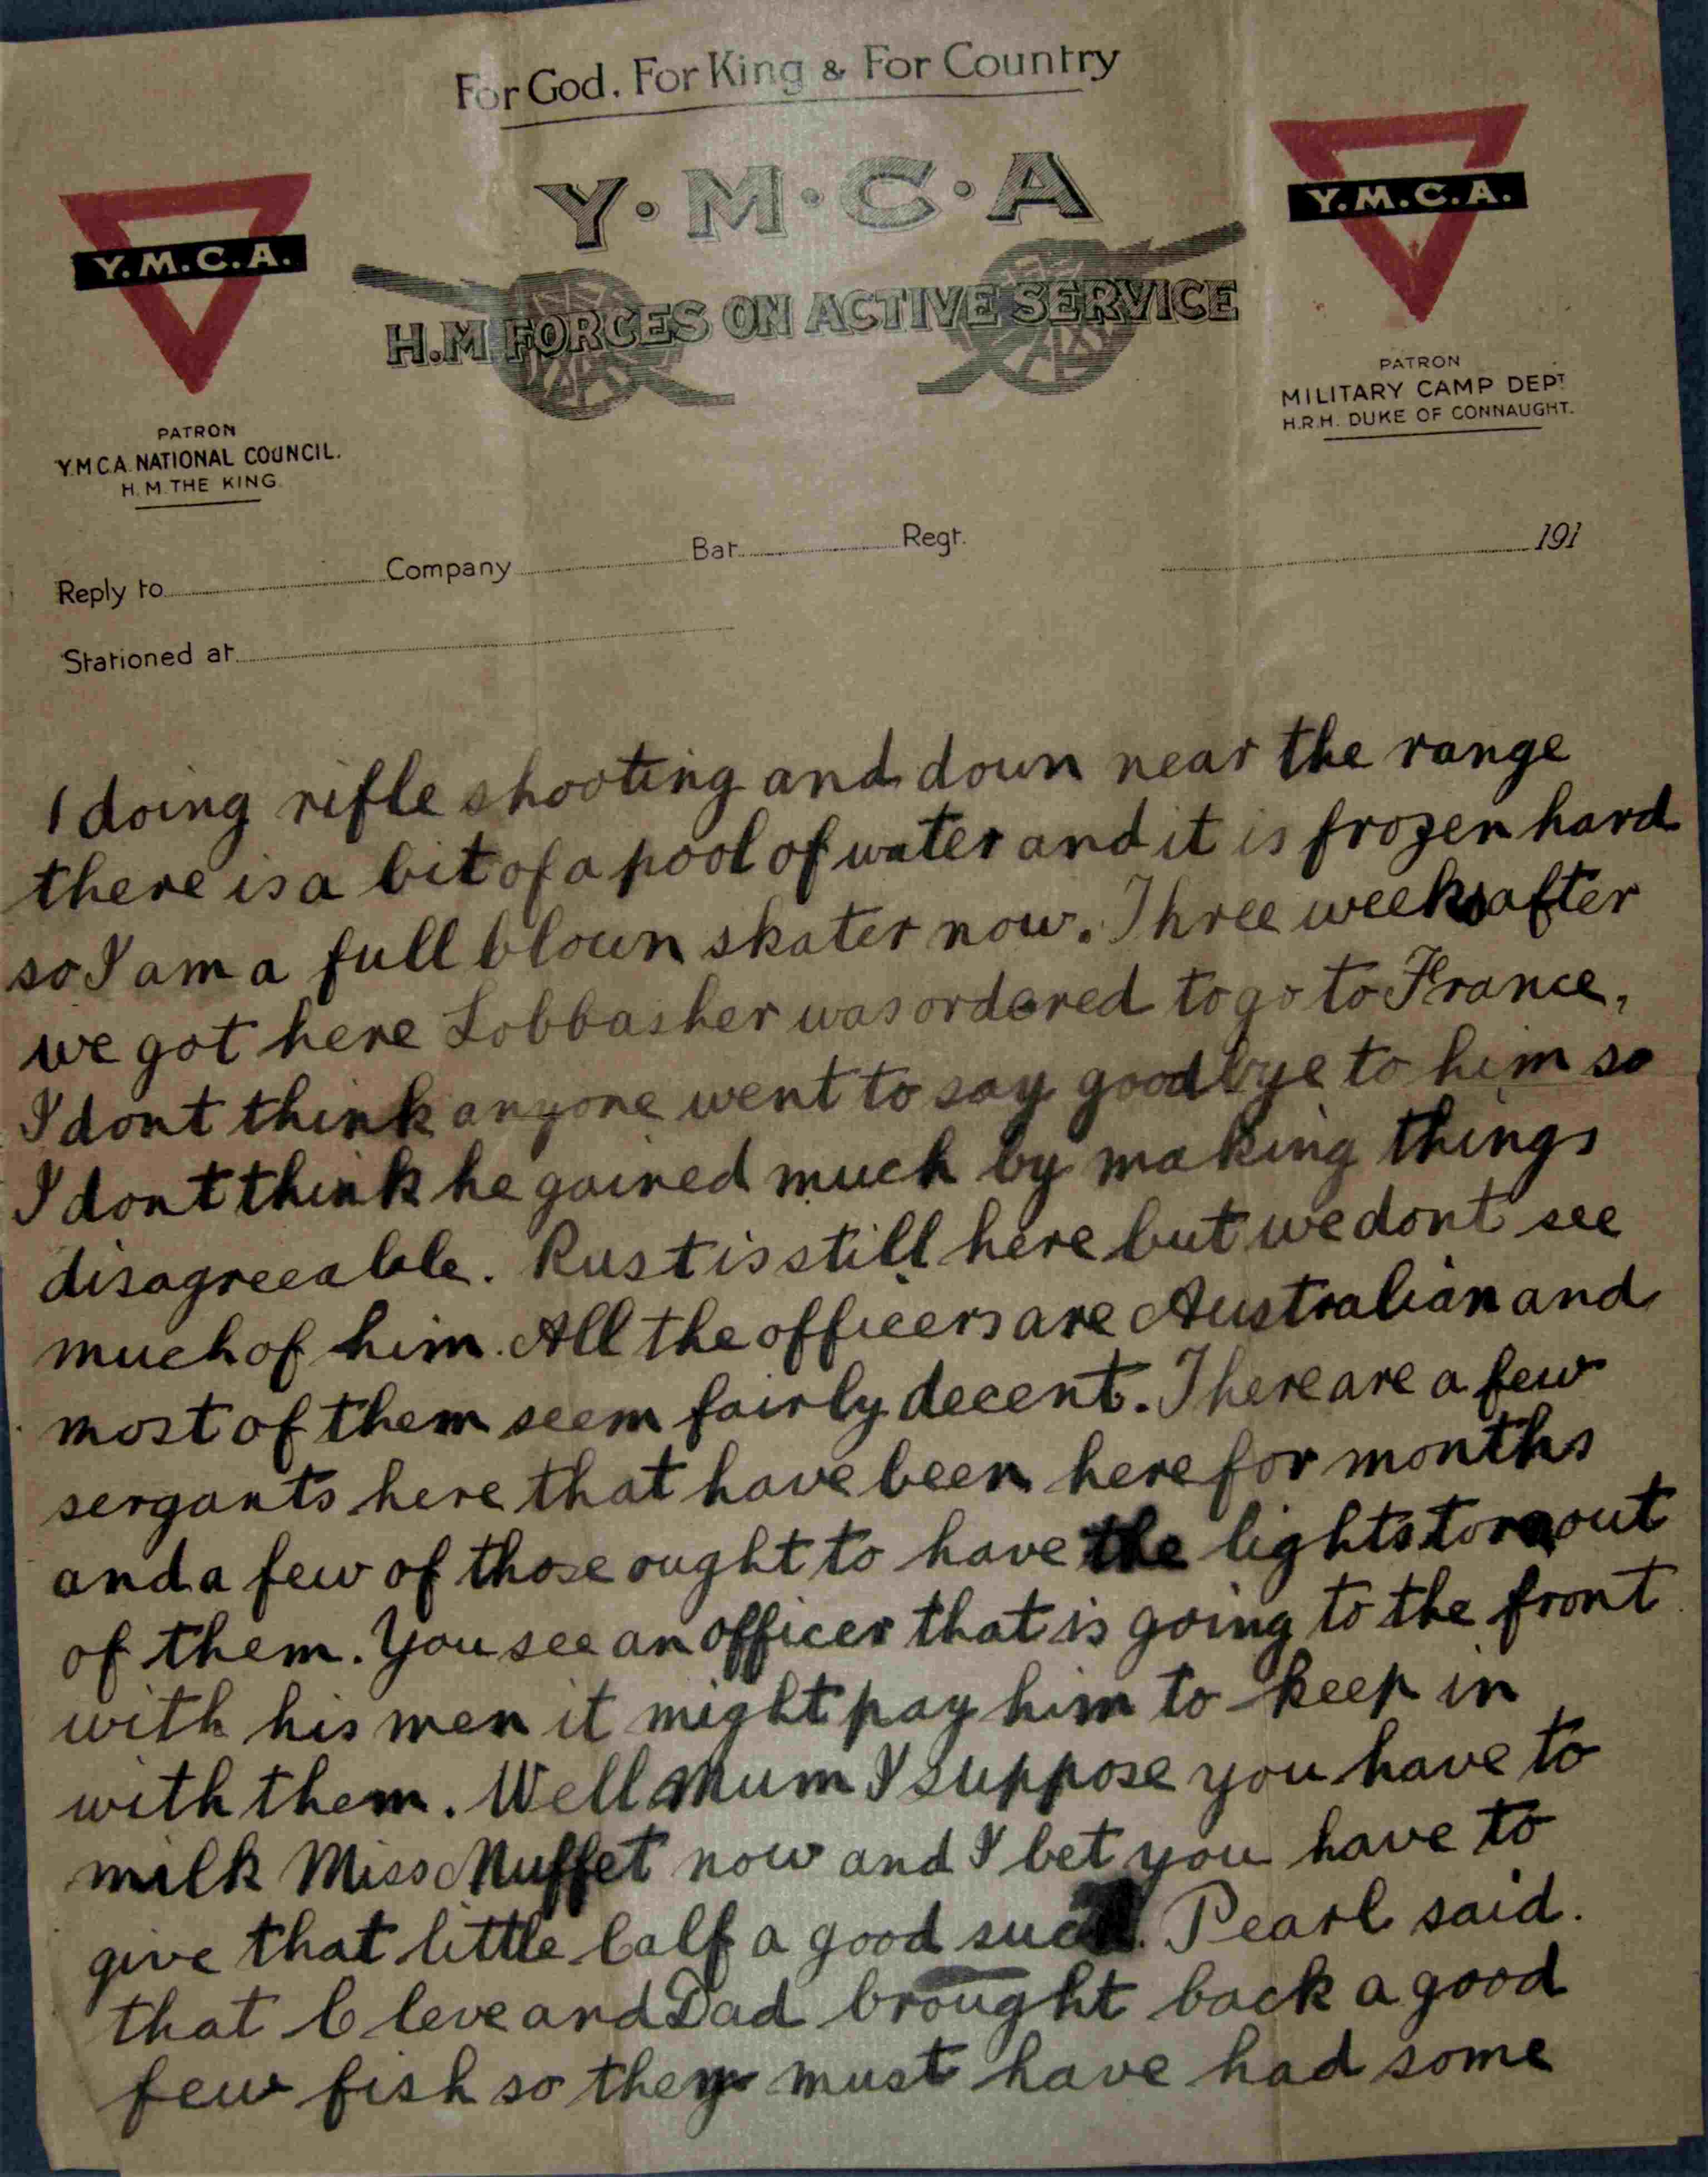 For God, For King & For Country
Y·M·C·A
Y.M.C.A.
Y.M.C.A.
H.M FORCES ON ACTIVE SERVICE
PATRON
Y.M.C.A. NATIONAL COUNCIL.
H.M. THE KING
PATRON
MILITARY CAMP DEPT
H.R.H. DUKE OF CONNAUGHT.
Reply to Company Bat. Regt. 191
Stationed at
doing rifle shooting and down near the range
there is a bit of a pool of water and it is frozen hard
so I am a full blown skater now. Three weeks after
we got here Lobbasher was ordered to go to France,
I dont think anyone went to say goodbye to him so
I dont think he gained much by making things
disagreeable. Rust is still here but we dont see
much of him. All the officers are Australian and
most of them seem fairly decent. There are a few
sergants here that have been here for months
and a few of those ought to have the lights torn out
of them. You see an officer that is going to the front
with his men it might pay him to keep in
with them. Well Mum I suppose you have to
milk Miss Muffet now and I bet you have to
give that little Calf a good suck. Pearl said.
that Cleve and Dad brought back a good
few fish so they must have had some